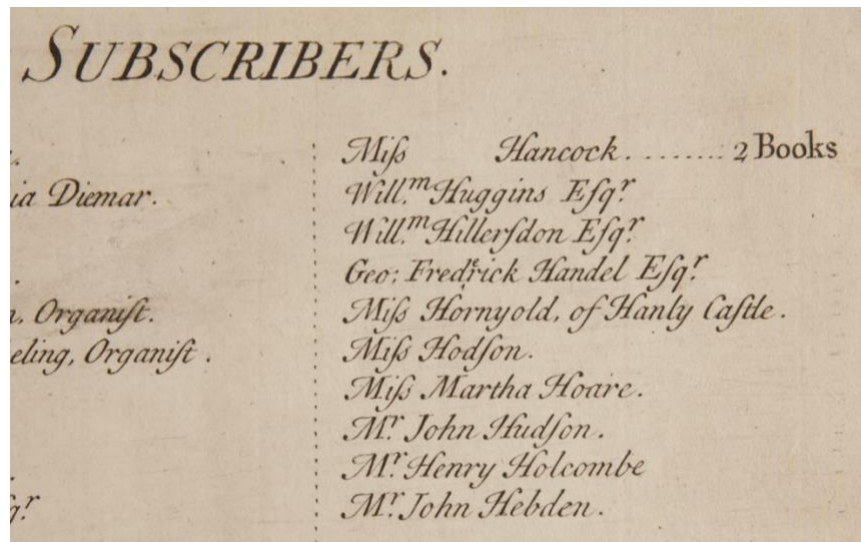 SUBSCRIBERS.
ia Diemar.
n, Organiſt.
eling, Organiſt.
ſqr
Miſs Hancock ........ 2 Books
Will.m Huggins Eſqr
Will.m Hillerſdon Eſqr.
Geo: Fredrick Handel Eſqr.
Miſs Hornyold, of Hanly Caſtle.
Miſs Hodſon.
Miſs Martha Hoare.
Mr. John Hudſon.
Mr. Henry Holcombe
Mr. John Hebden.